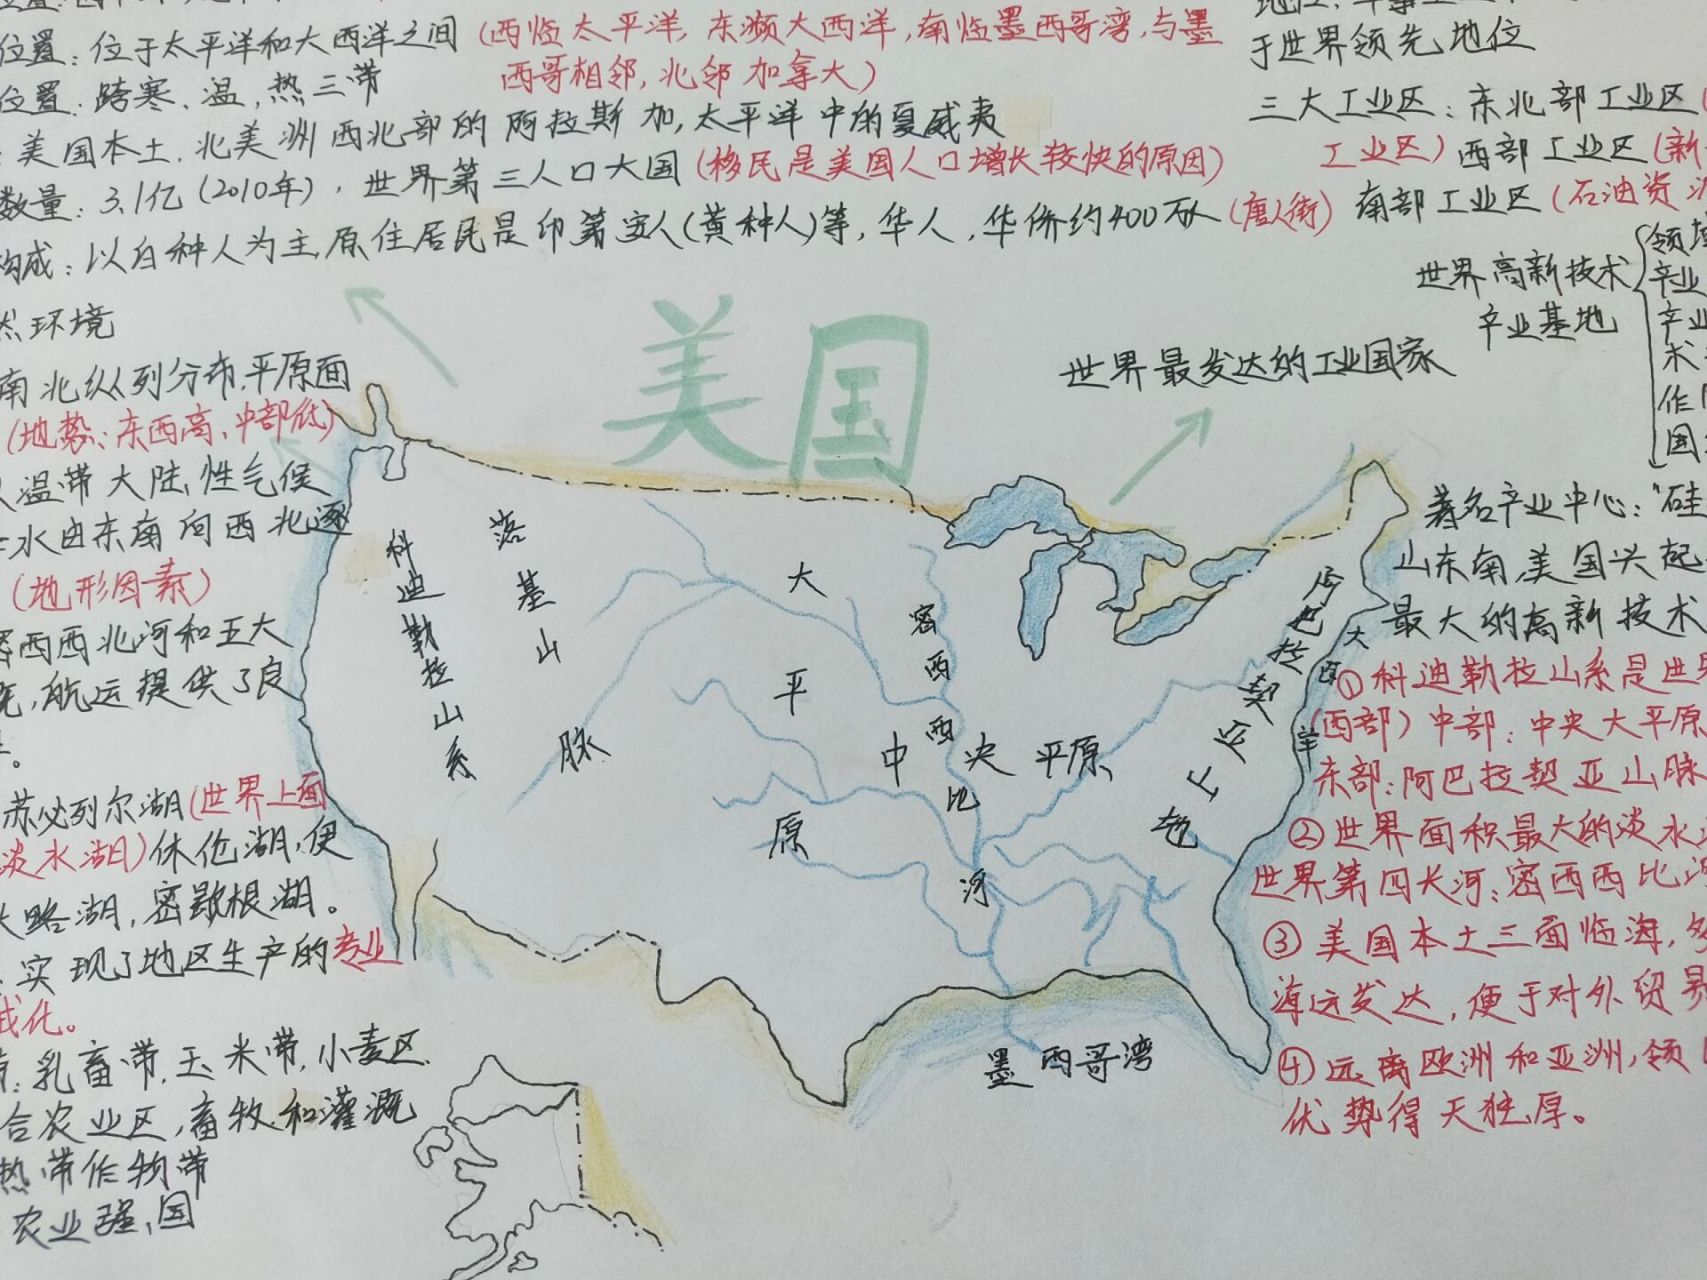 位置：位于太平洋和大西洋之间（西临太平洋，东濒大西洋，南临墨西哥湾，与墨
西哥相邻，北邻加拿大）
位置：跨寒、温、热三带
美国本土，北美洲西北部的阿拉斯加，太平洋中的夏威夷
数量：3.1亿（2010年），世界第三人口大国（移民是美国人口增长较快的原因）
构成：以白种人为主，原住居民是印第安人（黄种人）等，华人，华侨约400万人（唐人街）
于世界领先地位
三大工业区：东北部工业区
工业区）西部工业区（新
南部工业区（石油资源
世界高新技术
产业基地
领域
产业
产业
术
作
国
世界最发达的工业国家
美国
然环境
南北纵列分布，平原面
（地势：东西高，中部低）
温带大陆性气候
水由东南向西北逐
（地形因素）
密西西北河和五大
航运提供了良
苏必列尔湖（世界上面
淡水湖）休伦湖，伊
大略湖，密歇根湖。
实现了地区生产的专业
化。
乳畜带，玉米带，小麦区
合农业区，畜牧和灌溉
热带作物带
农业强，国
科迪勒拉山系
落基山脉
大平原
密西西比河
中央平原
阿巴拉契亚山
大西洋
墨西哥湾
著名产业中心：“硅
山东南，美国兴起
最大的高新技术
①科迪勒拉山系是世界
（西部）中部：中央大平原
东部：阿巴拉契亚山脉
②世界面积最大的淡水
世界第四长河：密西西比河
③美国本土三面临海，
海运发达，便于对外贸易
④远离欧洲和亚洲，领
优势得天独厚。